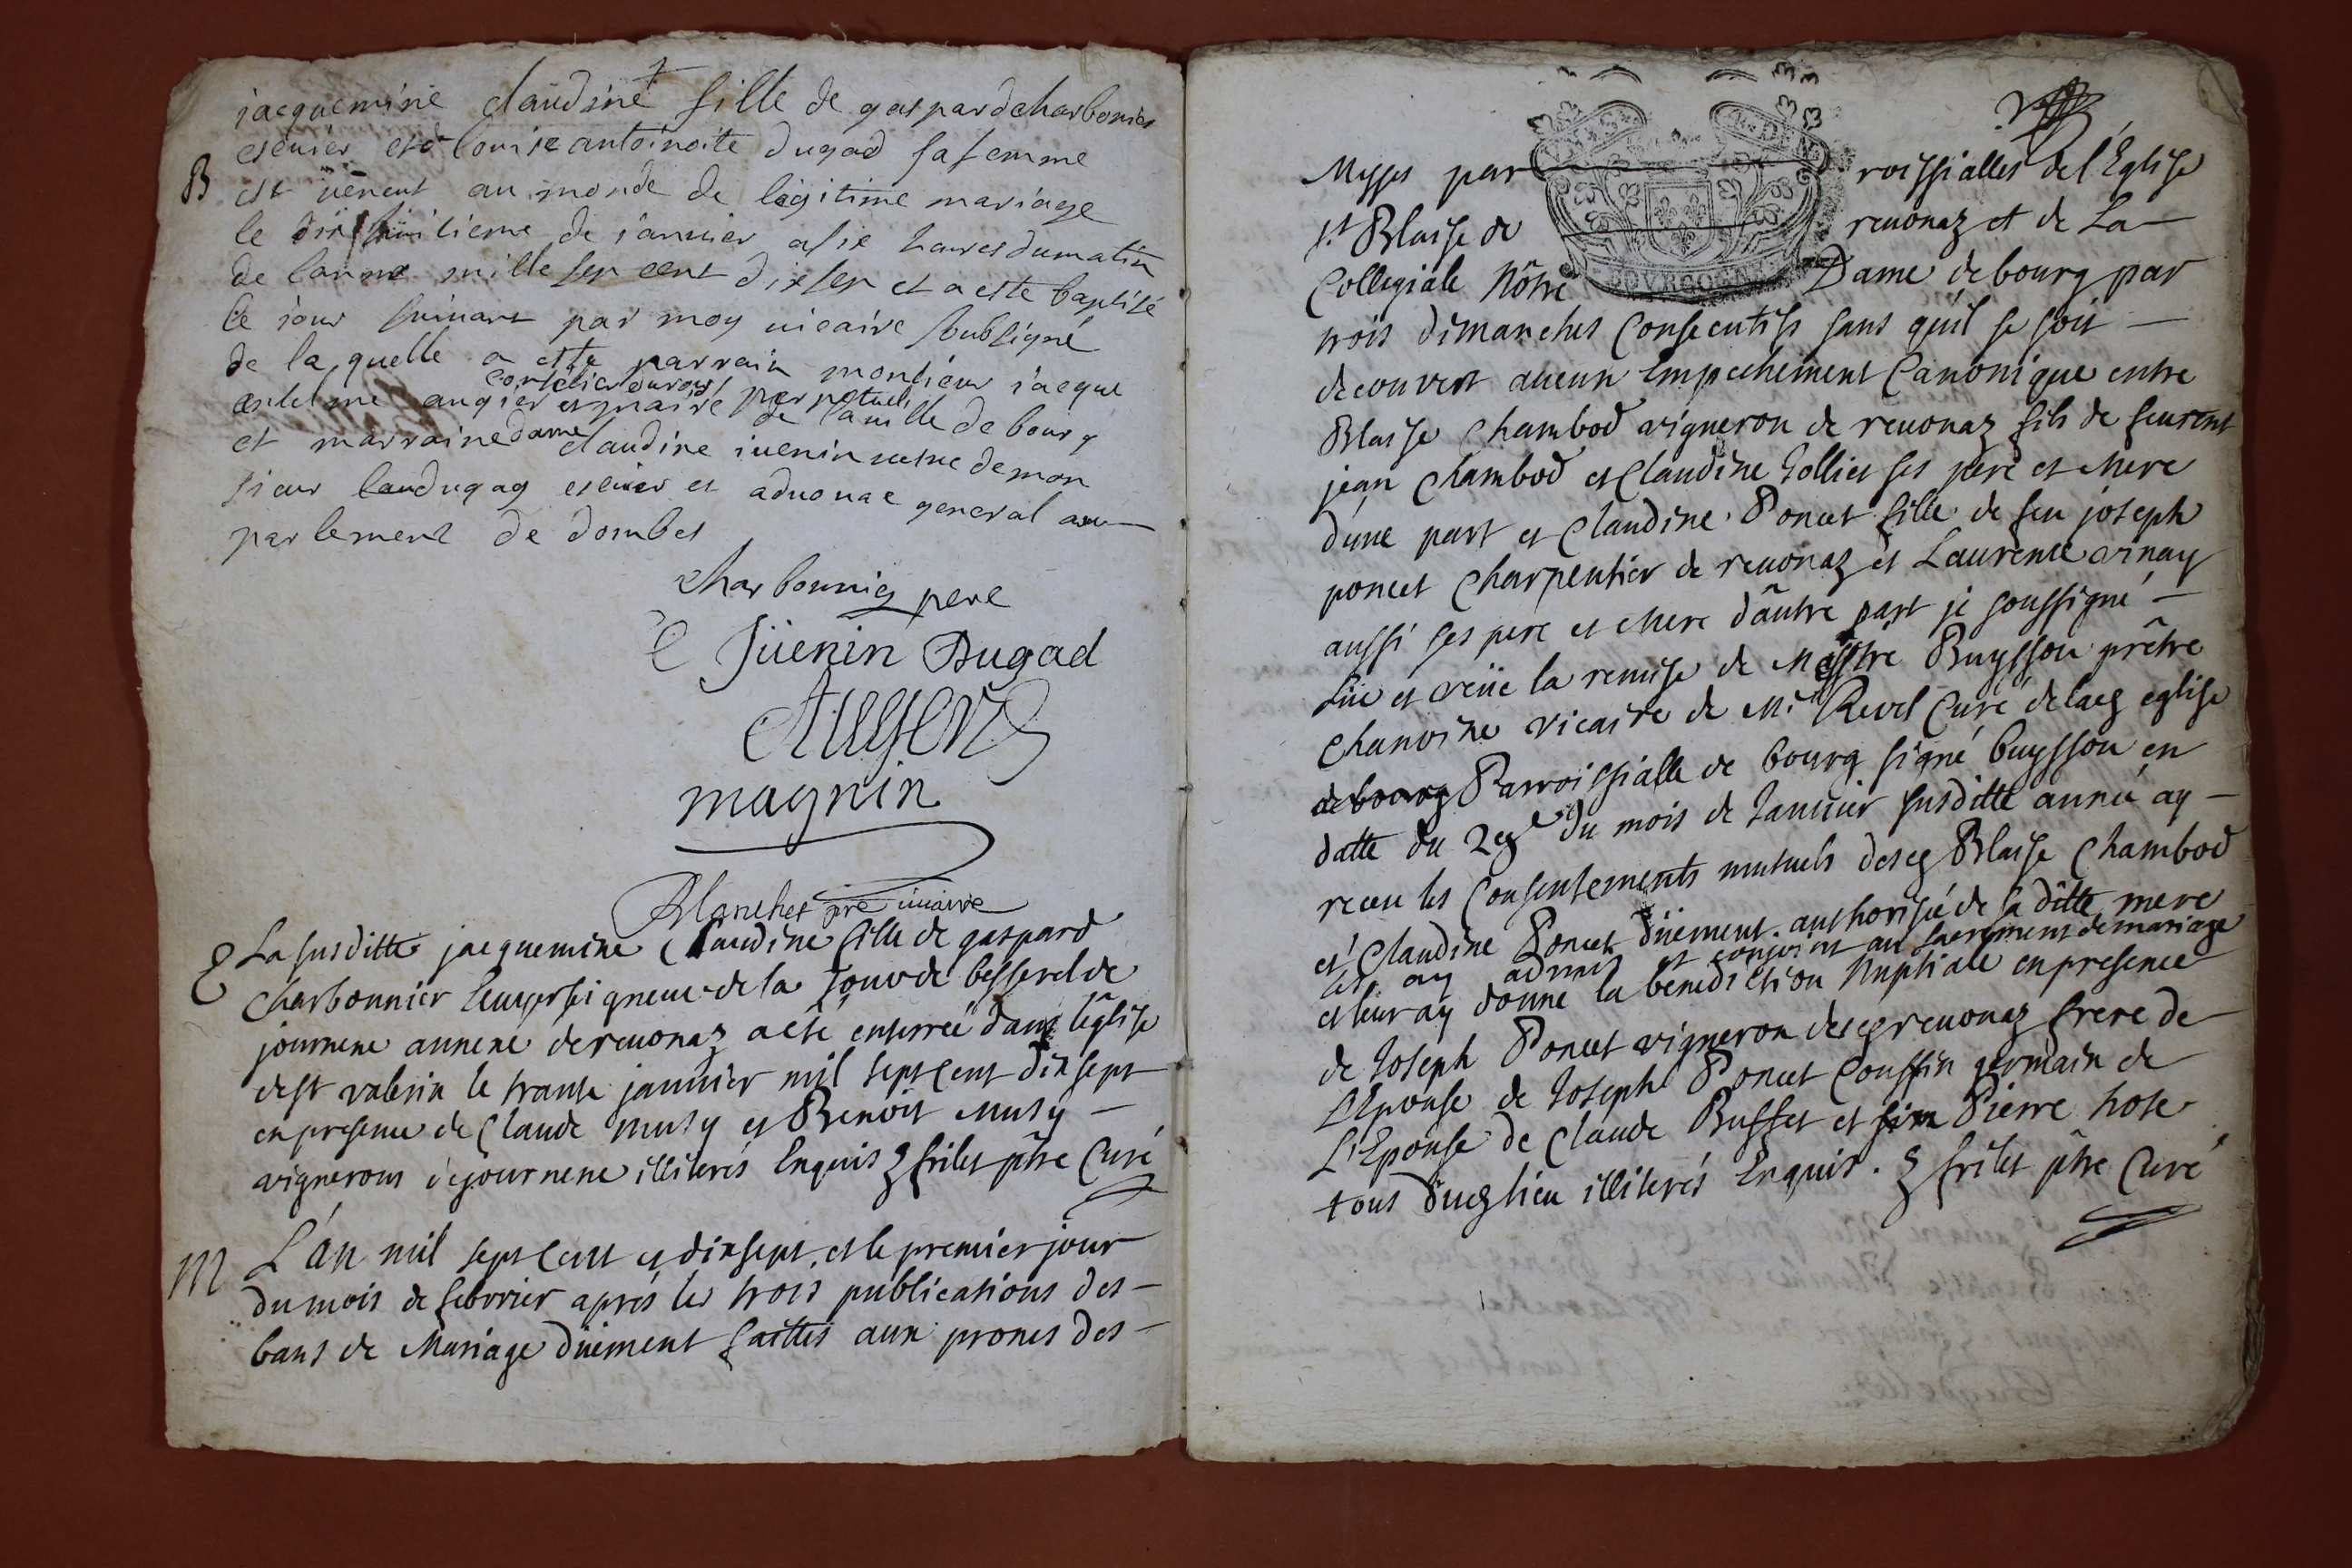 jacquemine claudine fille de gaspard charbonier
B
escuier et d louise antoinaite dugad sa femme
est venent au monde de legitime mariage
le dix huitieme de janvier a six heures du matin
de lanne mille sep cent dix sep et a este baptisé
le jour suivant par moy vicaire soubsigné
de la quelle a este parrain monsieur jacque
conseiller du roy
antelme augier et maire perpetuel de la ville de bourg
et marraine dame claudine juenin vefve de mon
sieur dugad escuier et advocat general au
parlement de dombes
Charbonnier pere
C Jüenin Dugad
Augier
magnin
Blanchet ptre vicaire
E La susditte jacquemine Claudine fille de gaspard
Charbonnier seigneur de la Tour de besserel de
journene annexe de revonaz a été enterrée dans l'église
de st valerin le trante janvier mil sept cent dix sept
en presence de Claude musy et Benoit musy
vignerons de journene illiterés Enquis frilet ptre Curé
M L'an mil sept cent et dix sept, et le premier jour
du mois de febvrier aprés les trois publications des
bans de Mariage düement faittes aux prones des
Messes parroissialles de l'Eglise
st Blaise de revonaz et de La
Collegiale Nôtre Dame de bourg par
BOVRGOGNE
trois dimanches Consecutifs sans qu'il se soit
decouvert aucun Empechement Canonique entre
Blaise Chambod vigneron de revonaz fils de feu
jean Chambod et Claudine Gollier ses pere et Mere
d'une part et Claudine Poncet fille de feu joseph
poncet Charpentier de revonaz et Laurence vinay
aussi ses pere et Mere d'autre part je soussigné
Lüe et veüe la remise de Messire Buysson prêtre
Chanoine vicaire de Mr Revel Curé de la eglise
de bourg Parroissialle de bourg signé buysson en
datte du du mois de Janvier susditte année ay
receu les Consentements mutuels de Blaise Chambod
et Claudine Poncet düement authorisée de sa ditte mere
les ay admis et conjoint au sacrement de mariage
et leur ay donné la benediction Nuptiale en presence
de Joseph Poncet vigneron de revonaz frere de
L'Epouse de Joseph Poncet Coussin germain de
L'Epouse de Claude Buffet et Pierre
tous du lieu illiterés Enquis. frilet ptre Curé